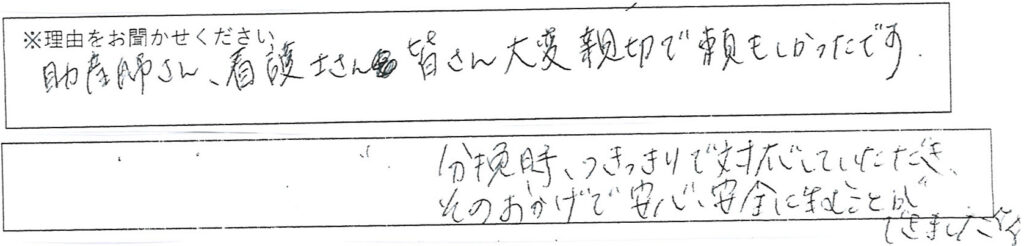 ※理由をお聞かせください
助産師さん、看護士さん皆さん大変親切で頼もしかったです.
分娩時、つきっきりで対応していただき、
そのおかげで安心、安全に生むことが
できました